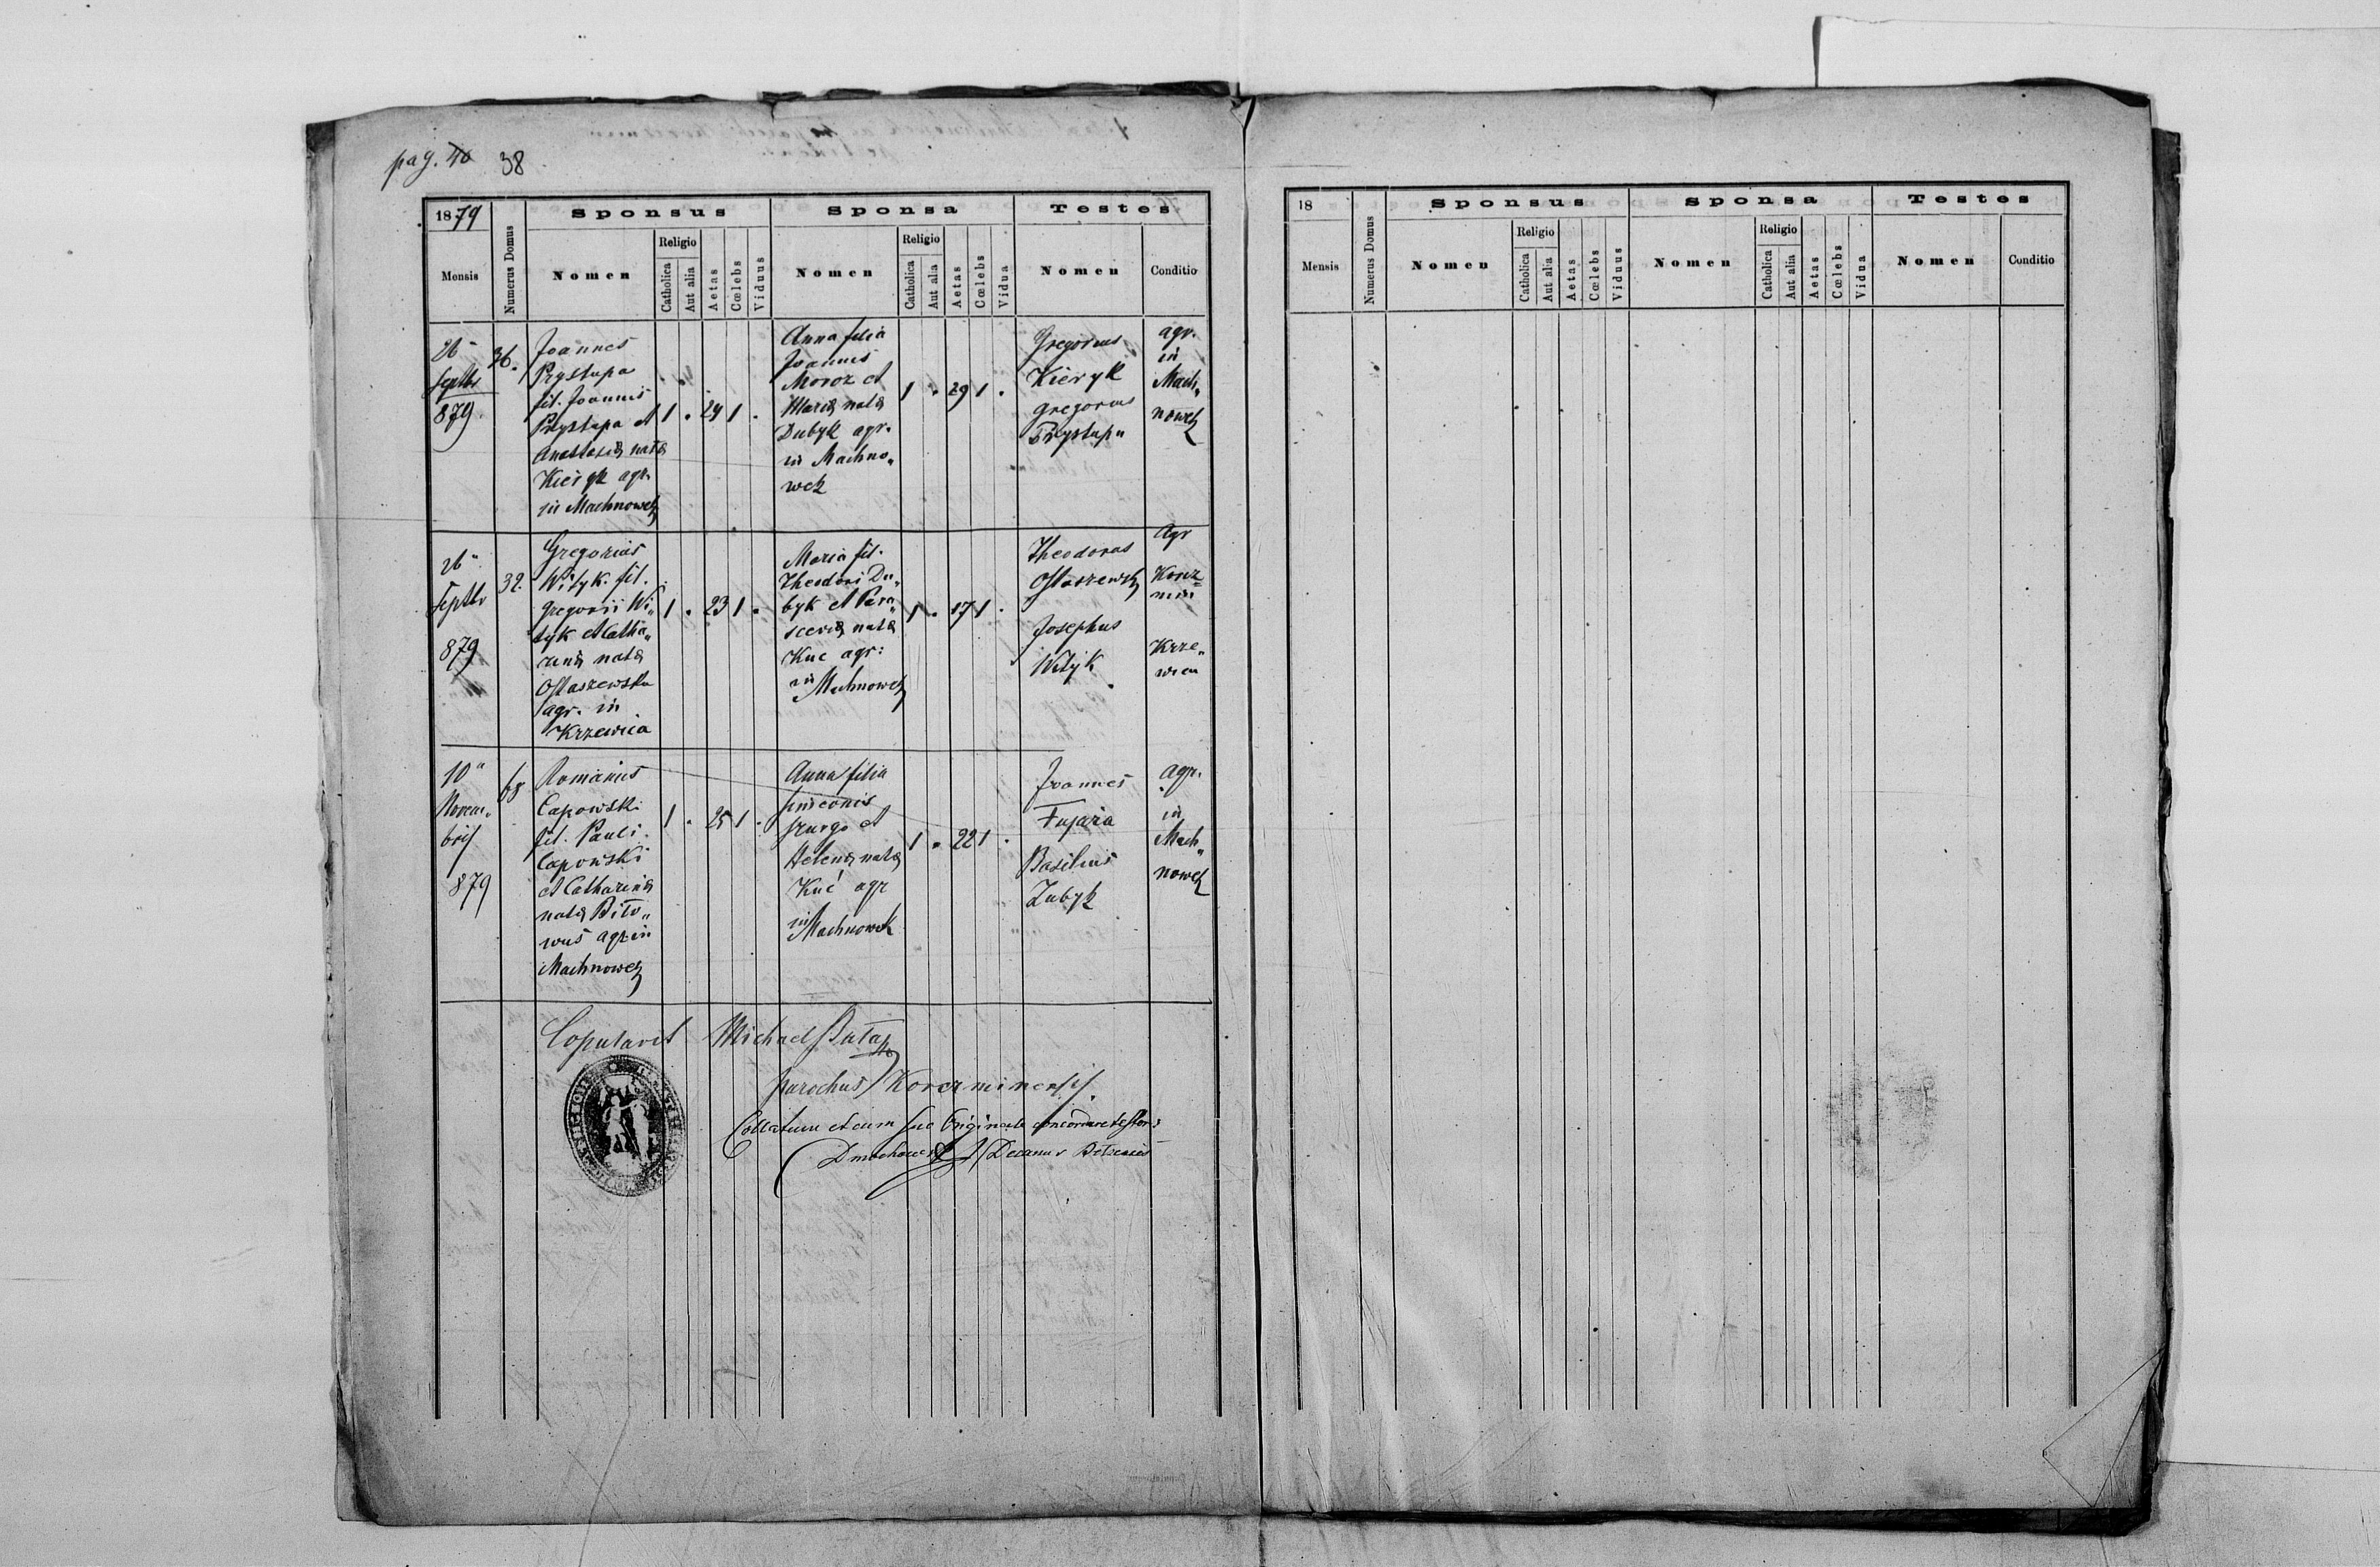 pag. 40 38
1879
Sponsus
Sponsa
Testes
Mensis
Numerus Domus
Nomen
Religio
Catholica
Aut alia
Aetas
Cœlebs
Viduus
Nomen
Religio
Catholica
Aut alia
Aetas
Cœlebs
Vidua
Nomen
Conditio
26
Septbr
879
36.
Joannes
Prystupa
fil. Joannis
Prystupa et
Anastasia nata
Kieryk agr.
in Machnowek
1 . 24 1 .
Anna filia
Joannis
Moroz et
Maria nata
Dubyk agr.
in Machno„
wek
1 . 29 1 .
Gregorius
Kieryk
Gregorius
Prystupa
agr.
in
Mach„
nowek
26
Septbr
879
32.
Gregorius
Wityk. fil.
Gregorii Wi„
tyk et Catha„
rina nata
Ostaszewska
agr. in
Krzewica
1 . 23 1 .
Maria fil.
Theodori Du„
byk et Para„
scevia nata
Kuc agr:
in Machnowek
1 . 17 1 .
Theodorus
Ostaszewski
Josephus
Wityk
Agr
Krze„
wica
10
Novem„
bris
879
68
Romanus
Capowski
fil. Pauli
Capowski
et Catharina
nata Biło„
wus agr. in
Machnowek
1 . 25 1 .
Anna filia
Simeonis
Szurgo et
Helena nata
Kuć agr
in Machnowek
1 . 22 1 .
Joannes
Fujara
Basilius
Zubyk
agr.
in
Mach„
nowek
Copulavit Michael
parochus Korczminensis.
Collatum et cum suo Originale concordare testor:
Decanus
18
Sponsus
Sponsa
Testes
Mensis
Numerus Domus
Nomen
Religio
Catholica
Aut alia
Aetas
Cœlebs
Viduus
Nomen
Religio
Catholica
Aut alia
Aetas
Cœlebs
Vidua
Nomen
Conditio